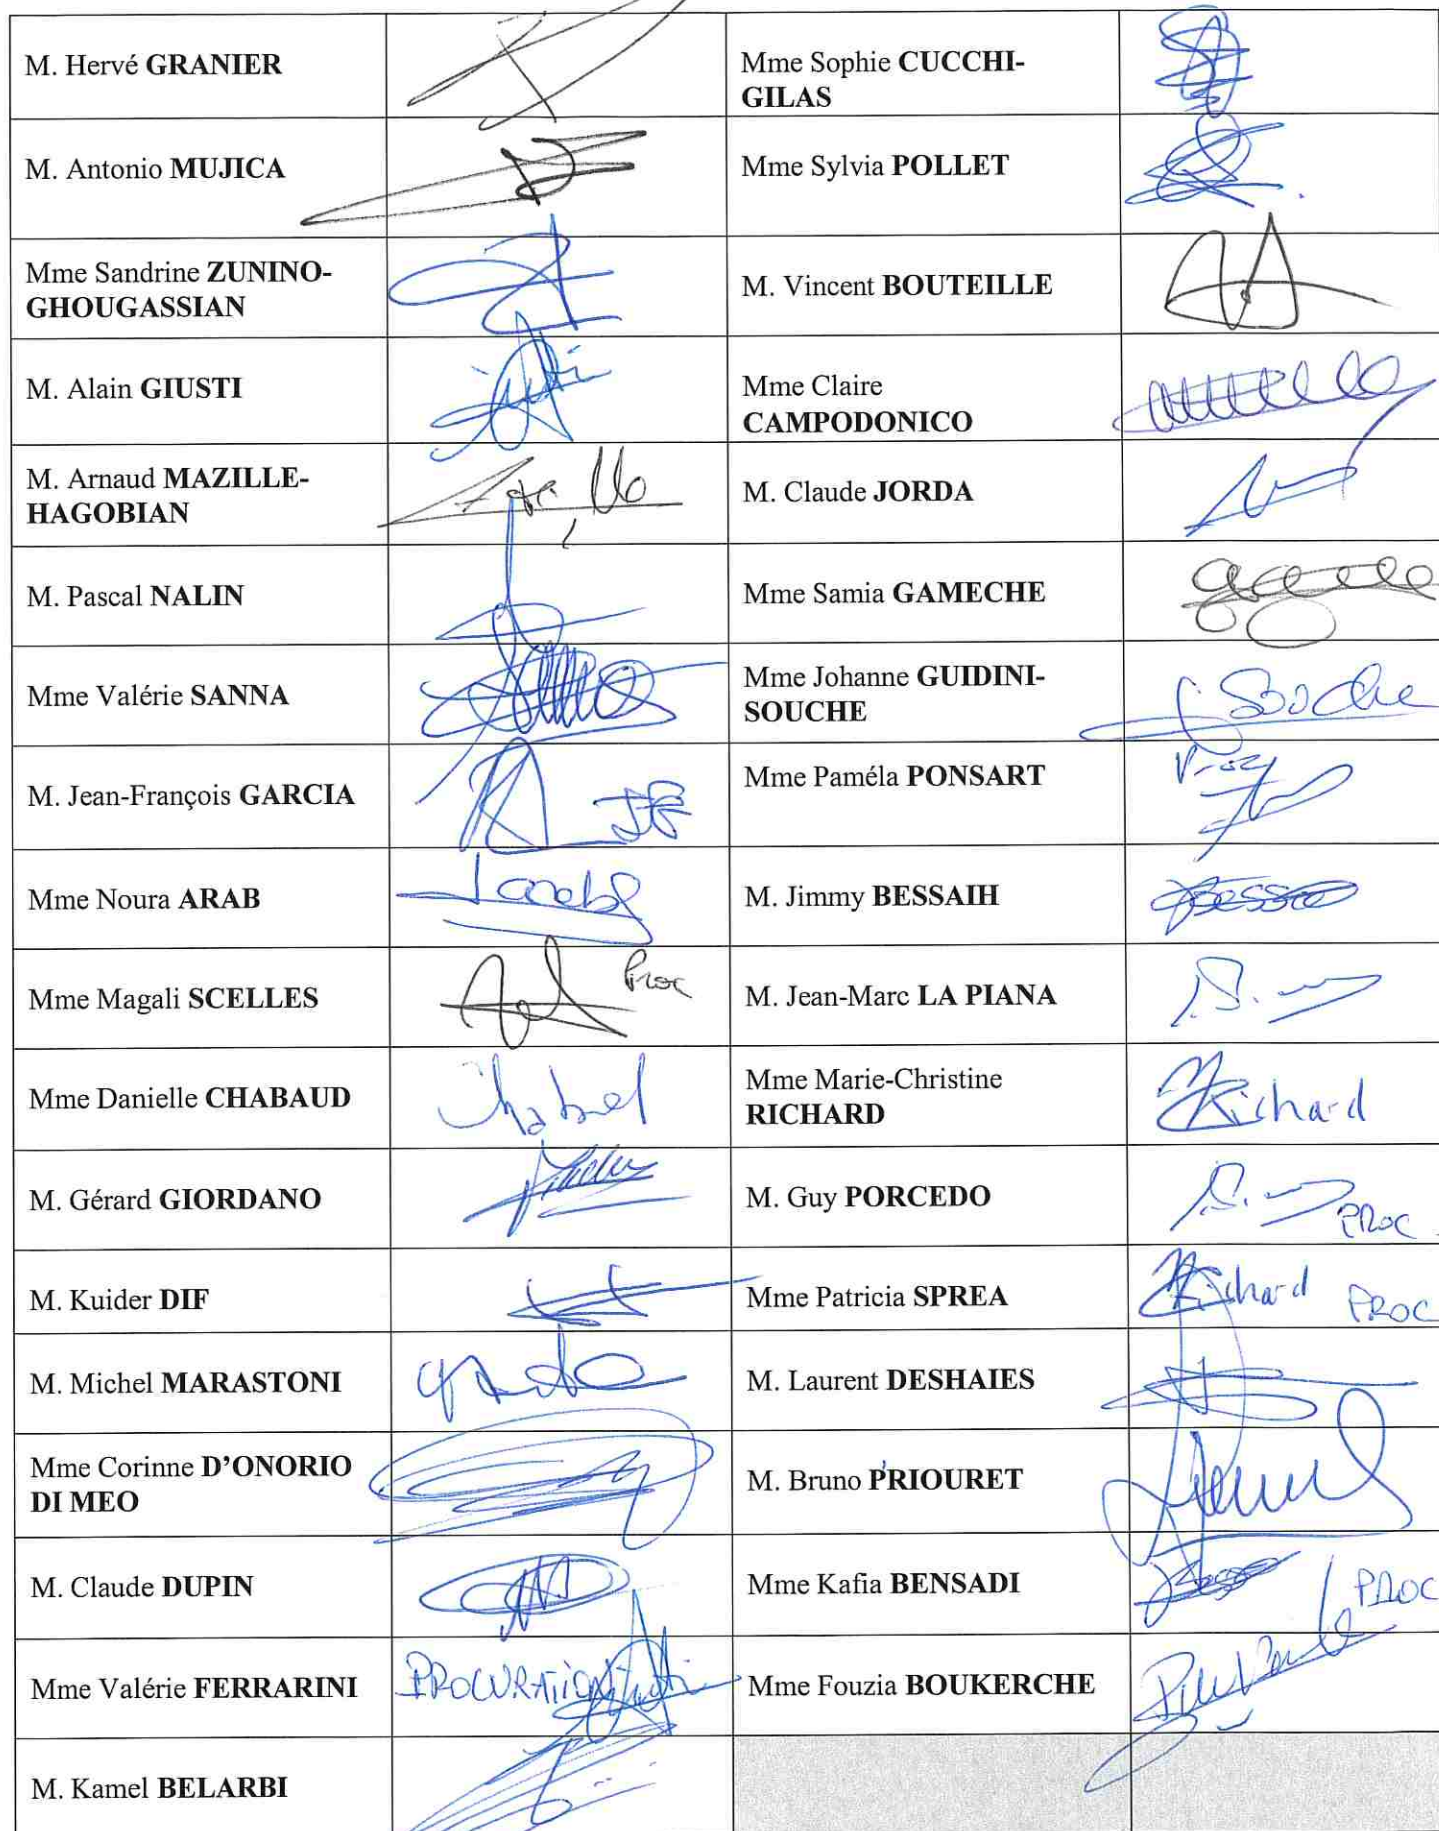 M. Hervé GRANIER
Mme Sophie CUCCHI-
GILAS
M. Antonio MUJICA
Mme Sylvia POLLET
Mme Sandrine ZUNINO-
GHOUGASSIAN
M. Vincent BOUTEILLE
M. Alain GIUSTI
Mme Claire
CAMPODONICO
M. Arnaud MAZILLE-
HAGOBIAN
M. Claude JORDA
M. Pascal NALIN
Mme Samia GAMECHE
Mme Valérie SANNA
Mme Johanne GUIDINI-
SOUCHE
Souche
M. Jean-François GARCIA
Mme Paméla PONSART
Proc
Mme Noura ARAB
M. Jimmy BESSAIH
Mme Magali SCELLES
Proc
M. Jean-Marc LA PIANA
Mme Danielle CHABAUD
Mme Marie-Christine
RICHARD
Richard
M. Gérard GIORDANO
M. Guy PORCEDO
PROC
M. Kuider DIF
Mme Patricia SPREA
Richard PROC
M. Michel MARASTONI
M. Laurent DESHAIES
Mme Corinne D'ONORIO
DI MEO
M. Bruno PRIOURET
M. Claude DUPIN
Mme Kafia BENSADI
PROC
Mme Valérie FERRARINI
PROCURATION
Mme Fouzia BOUKERCHE
M. Kamel BELARBI